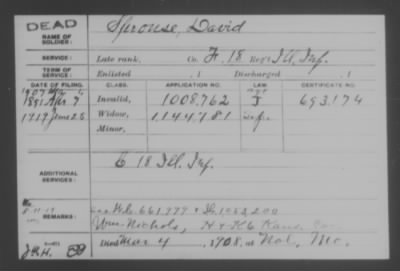 DEAD
NAME OF SOLDIER: Sprouse, David
SERVICE: Late rank, Co. F, 18 Reg't Ill. Inf.
TERM OF SERVICE: Enlisted , 1 Discharged , 1
DATE OF FILING. CLASS. APPLICATION NO. LAW. CERTIFICATE NO.
1907
1891 Apr. 7 Invalid, 1008.762 J 693.174
1917 June 25 Widow, 1144781
Minor,
ADDITIONAL SERVICES: C 18 Ill. Inf.
REMARKS: W.C. 661.999 1052200
Wm. Nichols, H
Died Mar 4, 1908, at Mo.